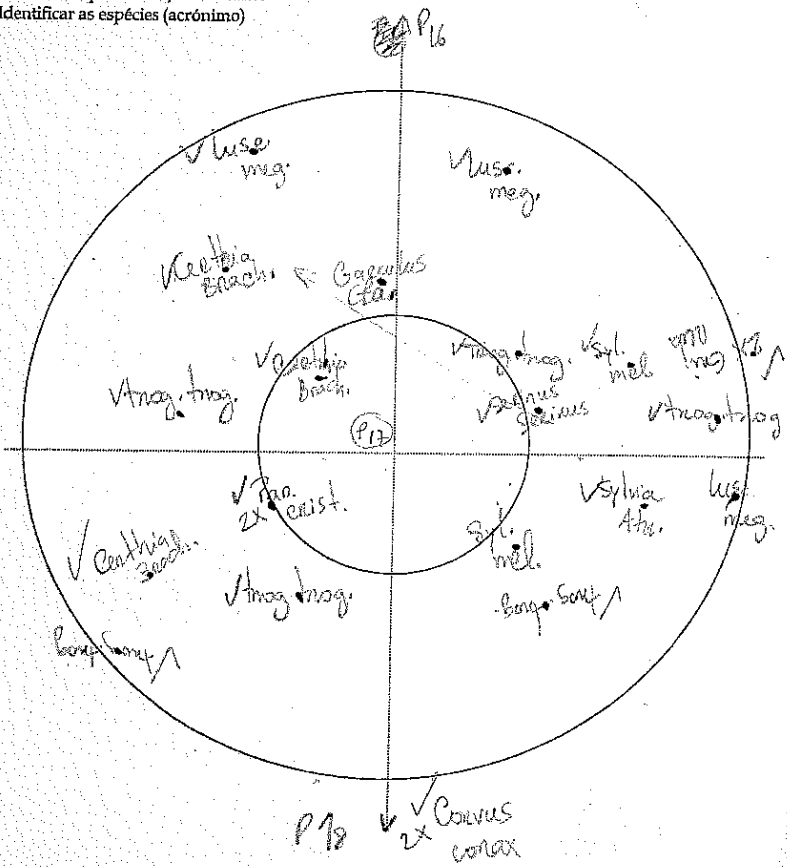 Identificar as espécies (acrónimo)
P16
✓ lusc.
meg.
✓ lusc.
meg.
✓ Certhia
Brach.
Garrulus
Gla.
✓ Certhia
Brach.
✓ trog. trog.
✓ Syl.
mel.
✓ trog. trog.
✓ Serinus
Serinus
✓ trog. trog
P17
✓ Par.
2x crist.
✓ Sylvia
Atr.
lus.
meg.
Syl.
mel.
✓ Certhia
Brach.
✓ trog. trog.
P18
✓ Corvus
2x corax